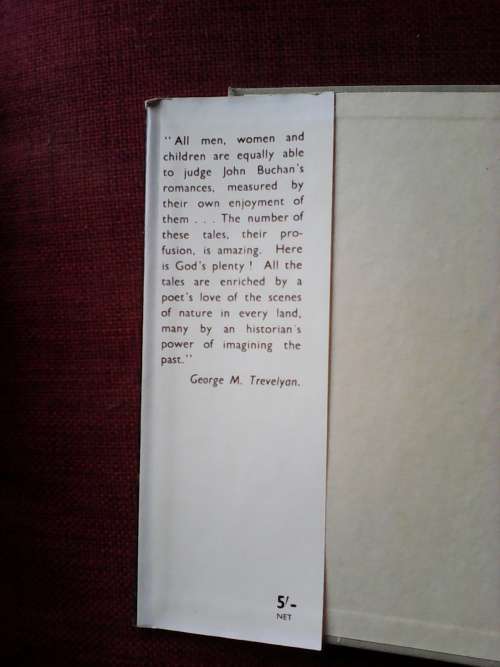 "All men, women and
children are equally able
to judge John Buchan's
romances, measured by
their own enjoyment of
them . . . The number of
these tales, their pro-
fusion, is amazing. Here
is God's plenty ! All the
tales are enriched by a
poet's love of the scenes
of nature in every land,
many by an historian's
power of imagining the
past."
George M. Trevelyan.
5/-
NET